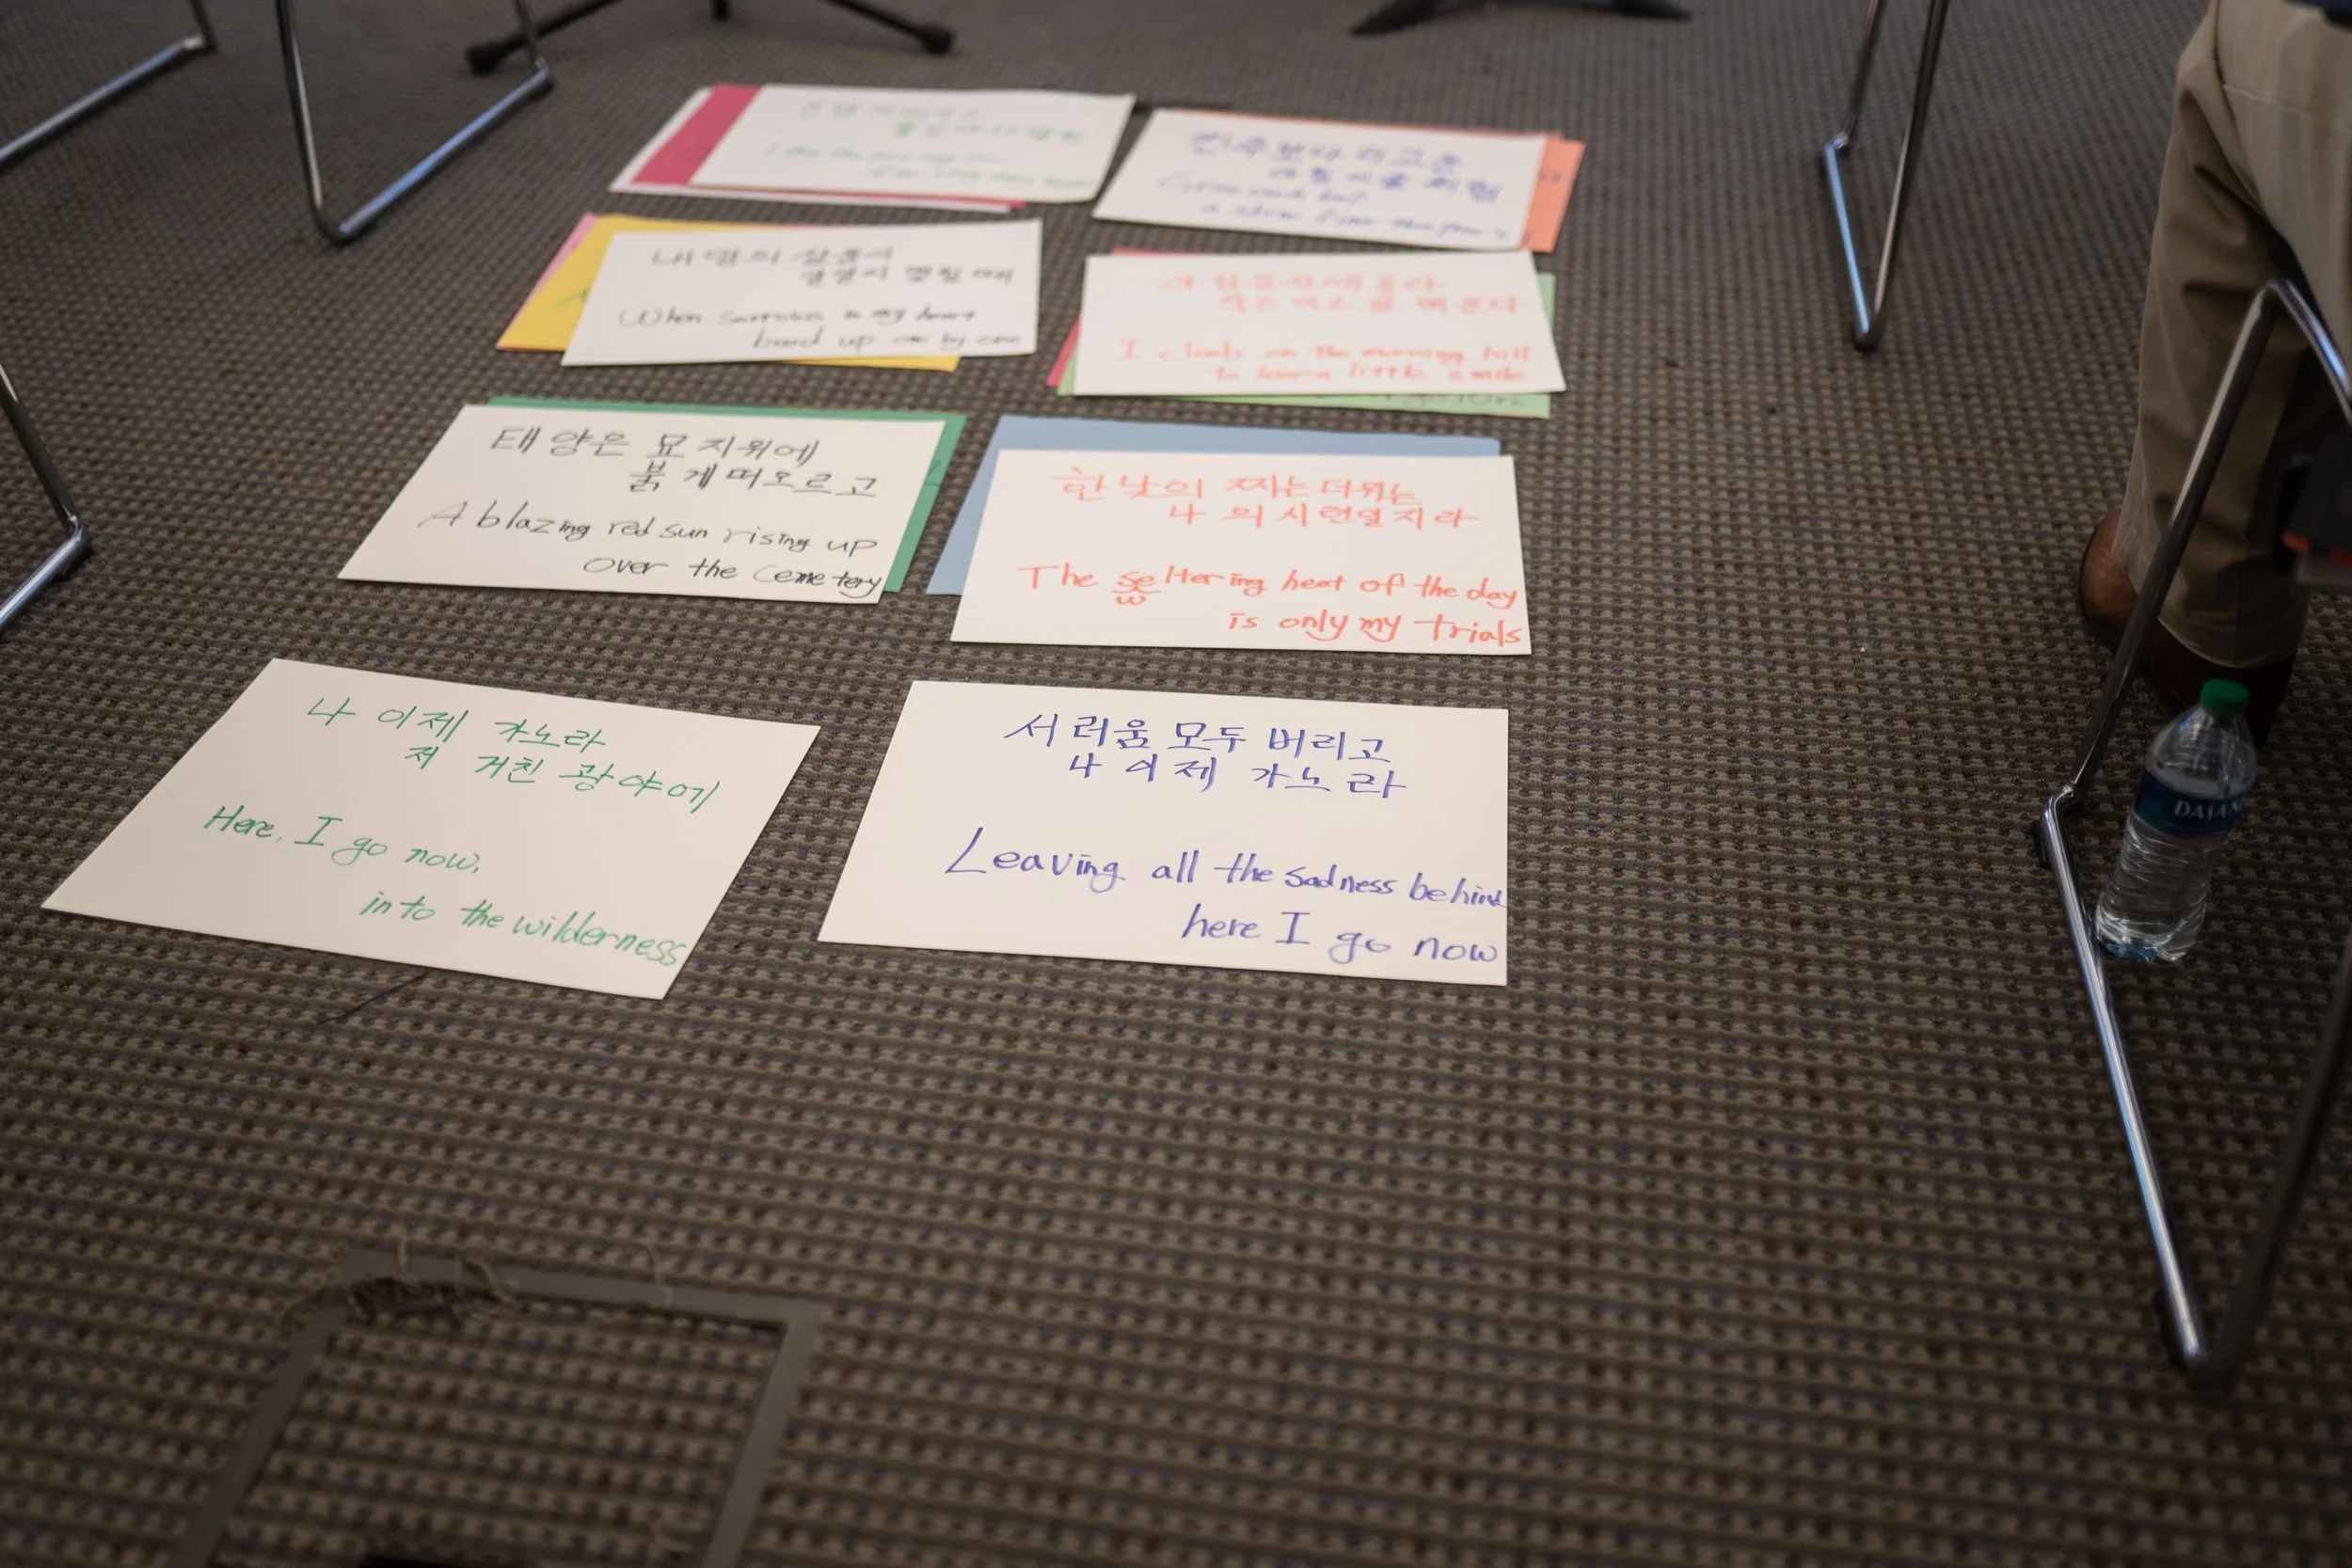 긴 밤 지새우고
풀잎마다 맺힌
Like the morning
진주보다 더 고운
아침 이슬처럼
내 맘의 설움이
알알이 맺힐 때
When sorrows in my heart
bead up one by one
아침 동산에 올라
작은 미소를 배운다
I climb on the morning hill
to learn little smile
태양은 묘지위에
붉게떠오르고
A blazing red sun rising up
over the cemetery
한낮의 찌는 더위는
나의 시련일지라
The sweltering heat of the day
is only my trials
나 이제 가노라
저 거친 광야에
Here, I go now,
into the wilderness
서러움 모두 버리고
나 이제 가노라
Leaving all the sadness behind
here I go now
DASAN